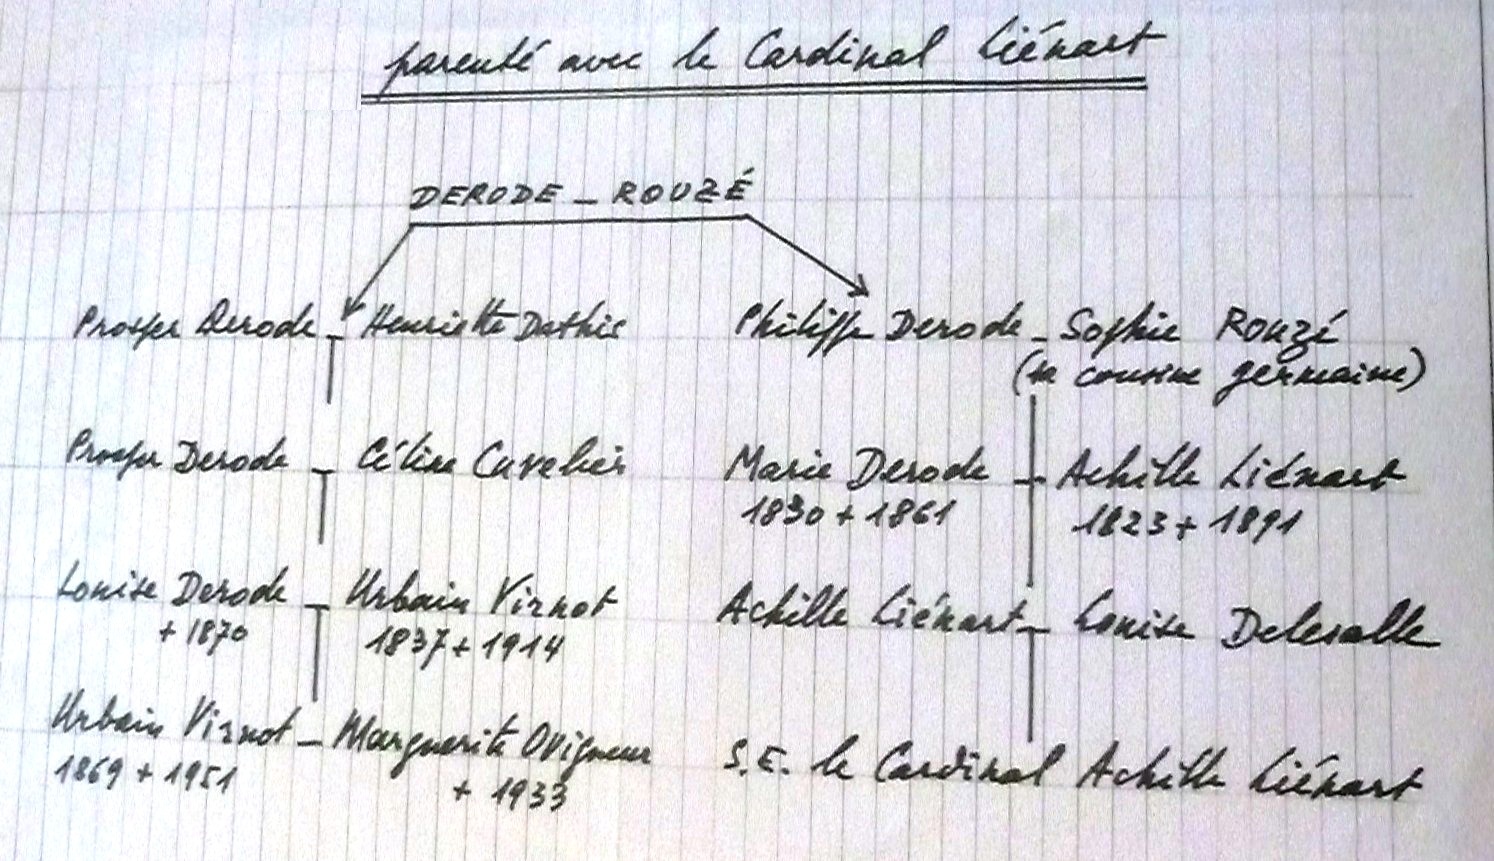 parenté avec le Cardinal Liénart
DERODE - ROUZÉ
Prosper Derode - Henriette Dathis
Philippe Derode - Sophie Rouzé
(sa cousine germaine)
Prosper Derode - Céline Cuvelier
Marie Derode - Achille Liénart
1830 + 1861 1823 + 1891
Louise Derode - Urbain Virnot
+ 1870 1837 + 1914
Achille Liénart - Louise Delesalle
Urbain Virnot - Marguerite Ovigneur
1869 + 1951 + 1933
S.E. le Cardinal Achille Liénart